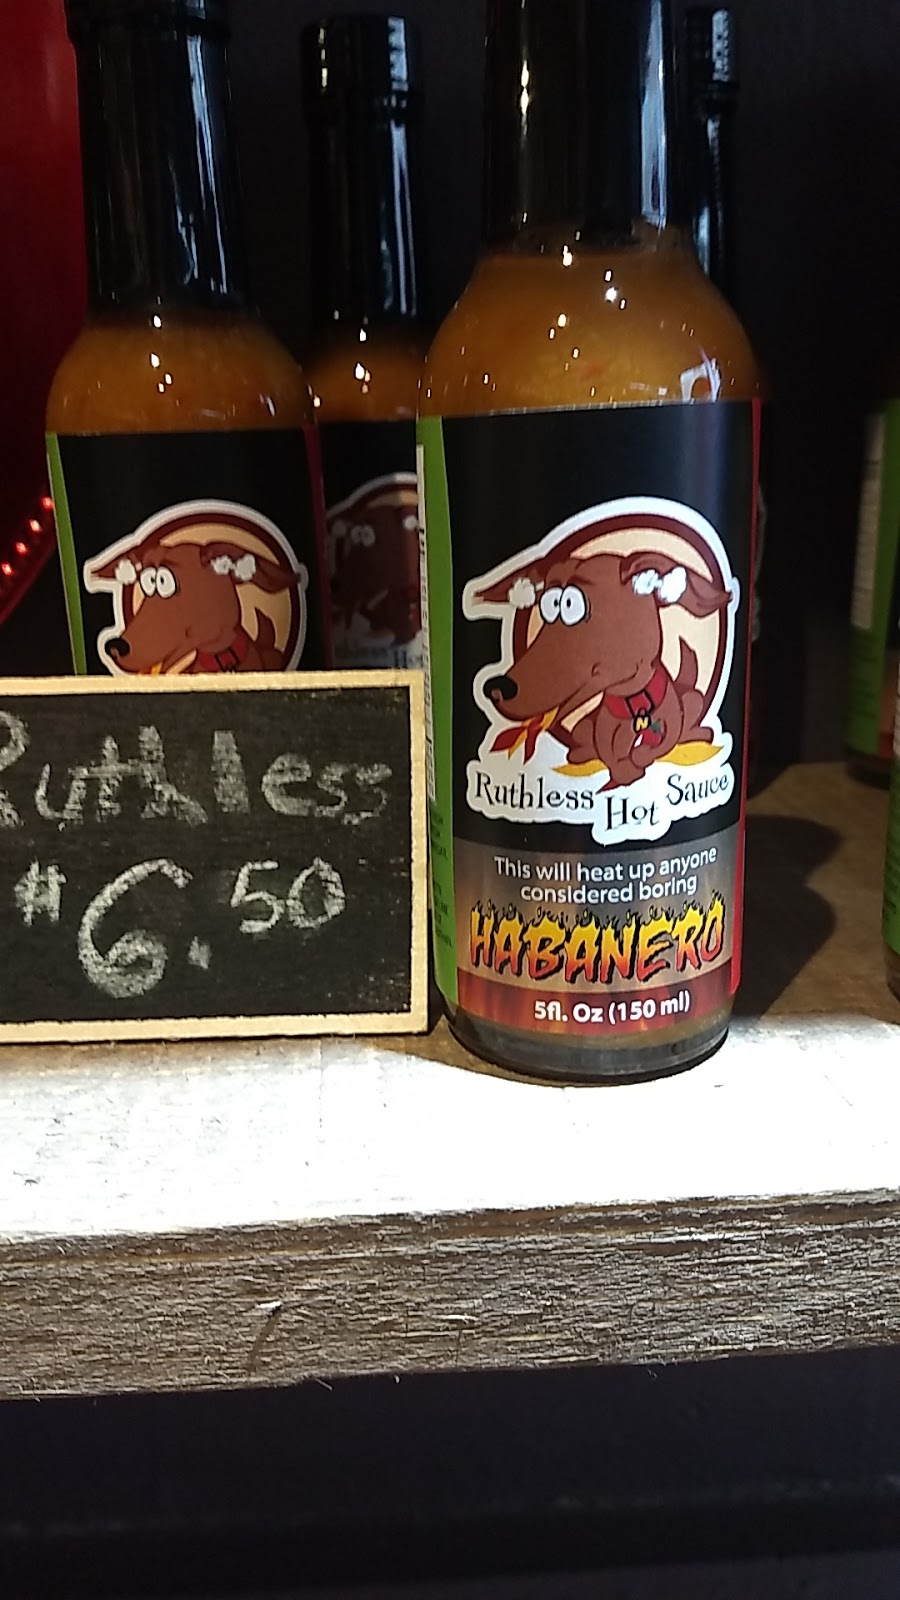 Ruthless
$6.50
Ruthless Hot Sauce
This will heat up anyone
considered boring
HABANERO
5fl. Oz (150 ml)